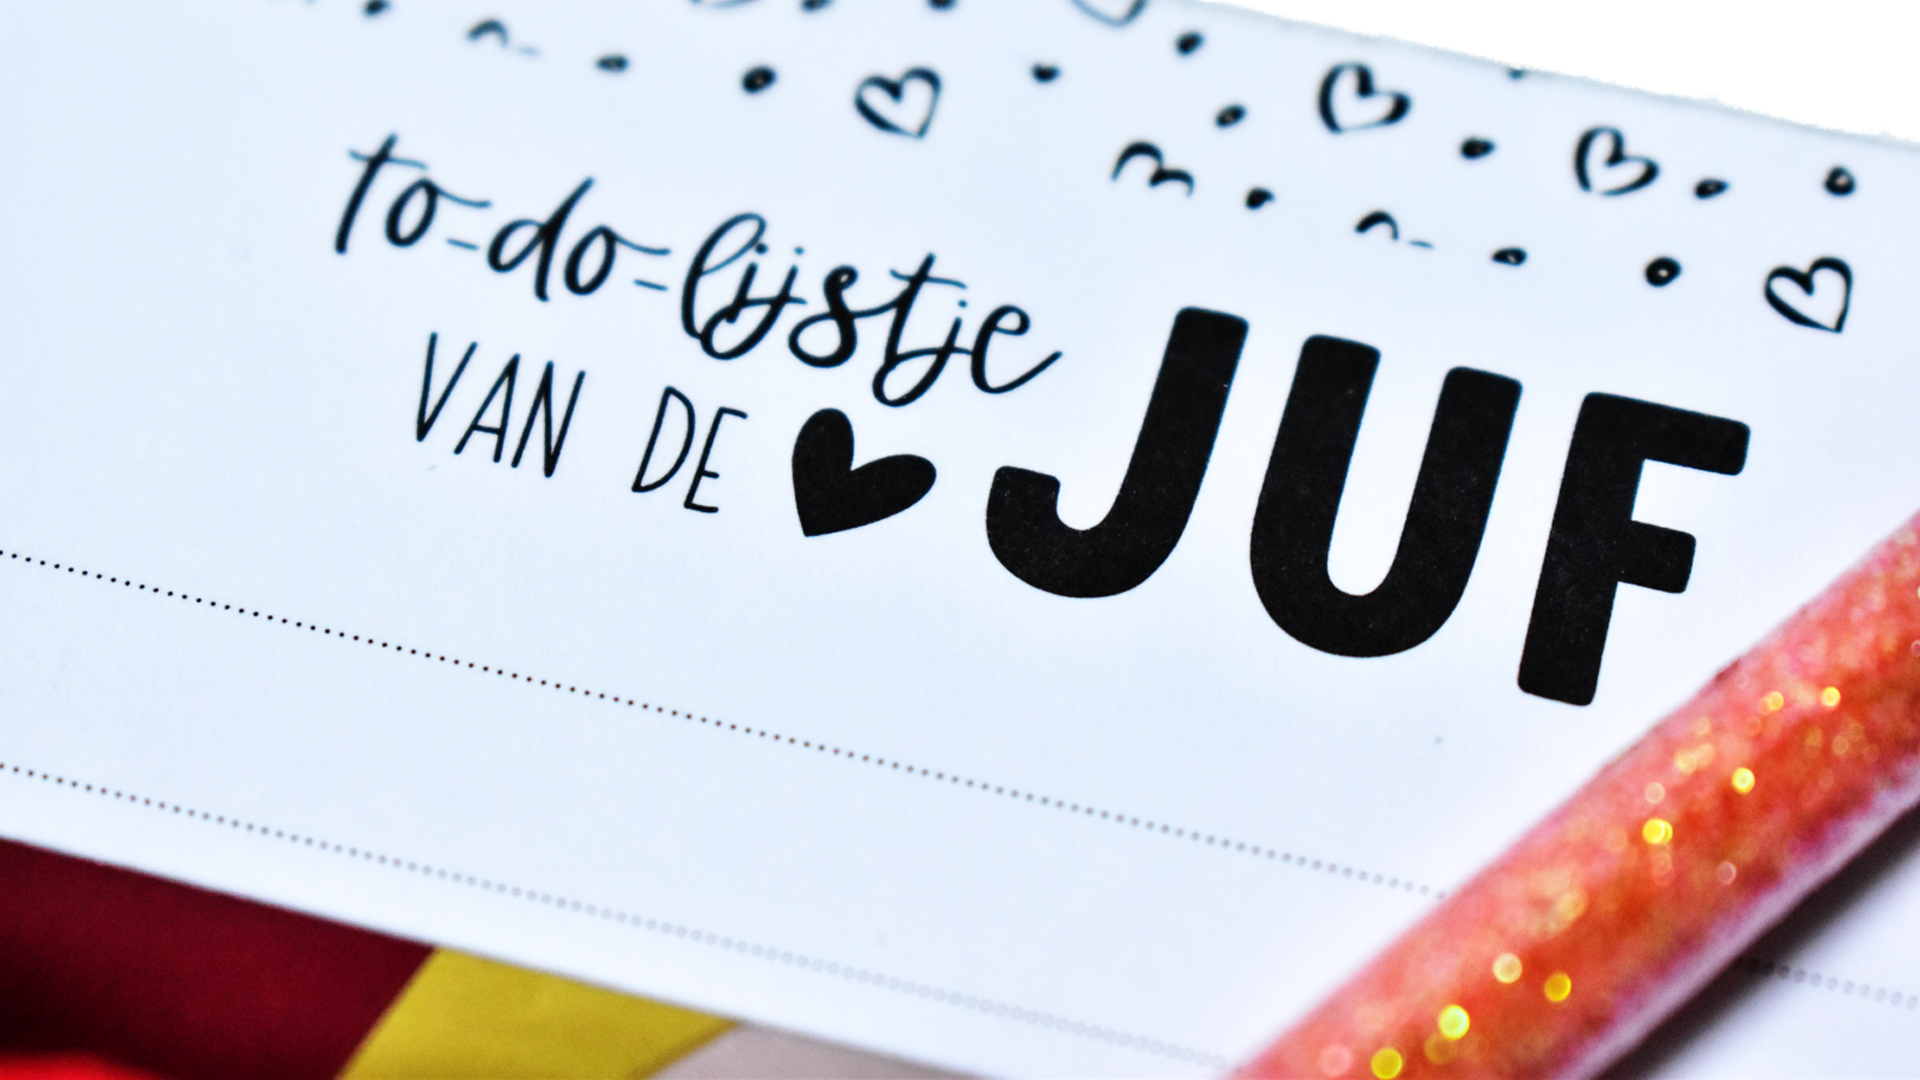 to-do-lijstje
VAN DE JUF